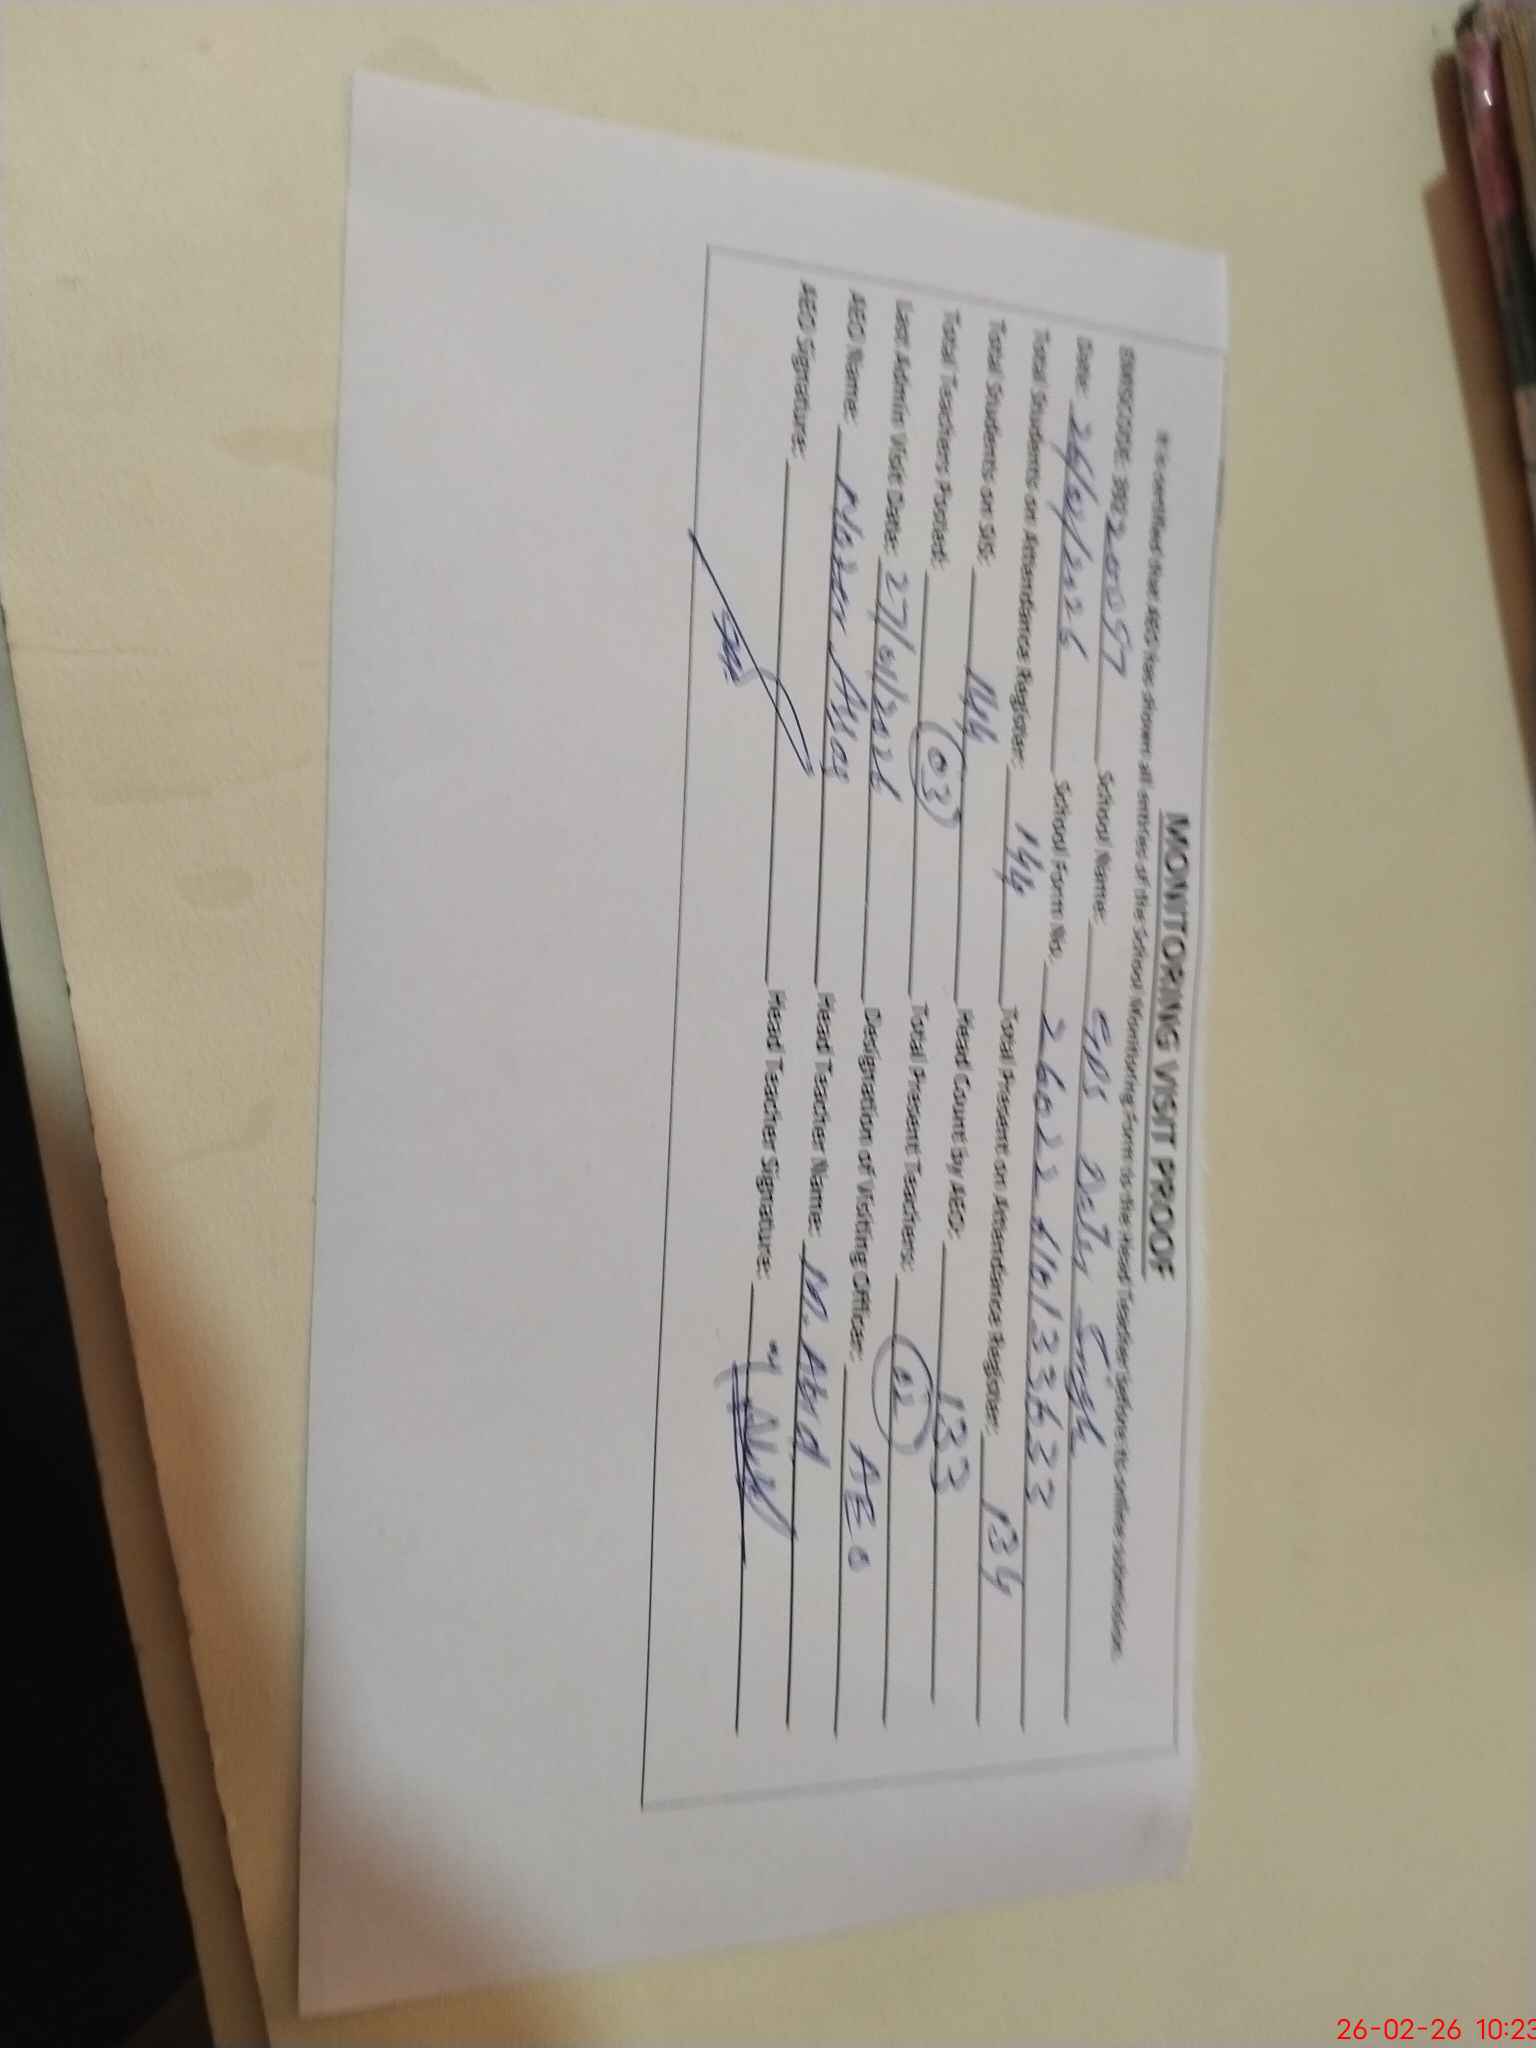 MONITORING VISIT PROOF
It is certified that AEO has shown all entries of the School Monitoring Form to the Head Teacher before its online submission.
EMISCODE: 39320057 School Name: GPS Natu Singh
Date: 26/02/2026 School Form No. 26022610133633
Total Students on Attendance Register: 144 Total Present on Attendance Register: 134
Total Students on SIS: 144 Head Count by AEO: 133
Total Teachers Posted: 03 Total Present Teachers: 02
Last Admin Visit Date: 27/01/2026 Designation of Visiting Officer: AEO
AEO Name: Head Teacher Name: M. Abid
AEO Signature: Head Teacher Signature:
26-02-26 10:23